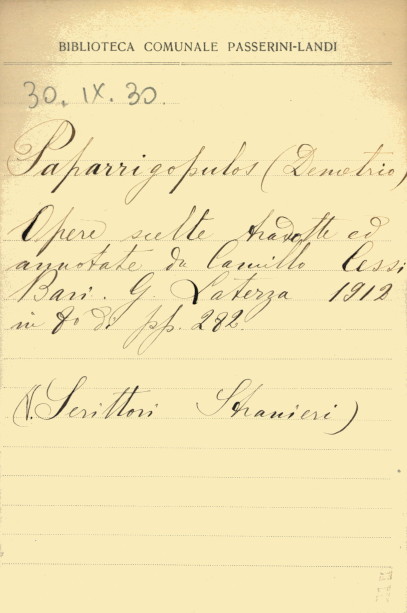 BIBLIOTECA COMUNALE PASSERINI-LANDI
30. IX. 30.
Paparrigopulos (Demetrio)
Opere scelte tradotte ed
annotate da Camillo Cessi
Bari. G. Laterza 1912
in 8° di pp. 282.
(V. Scrittori Stranieri)